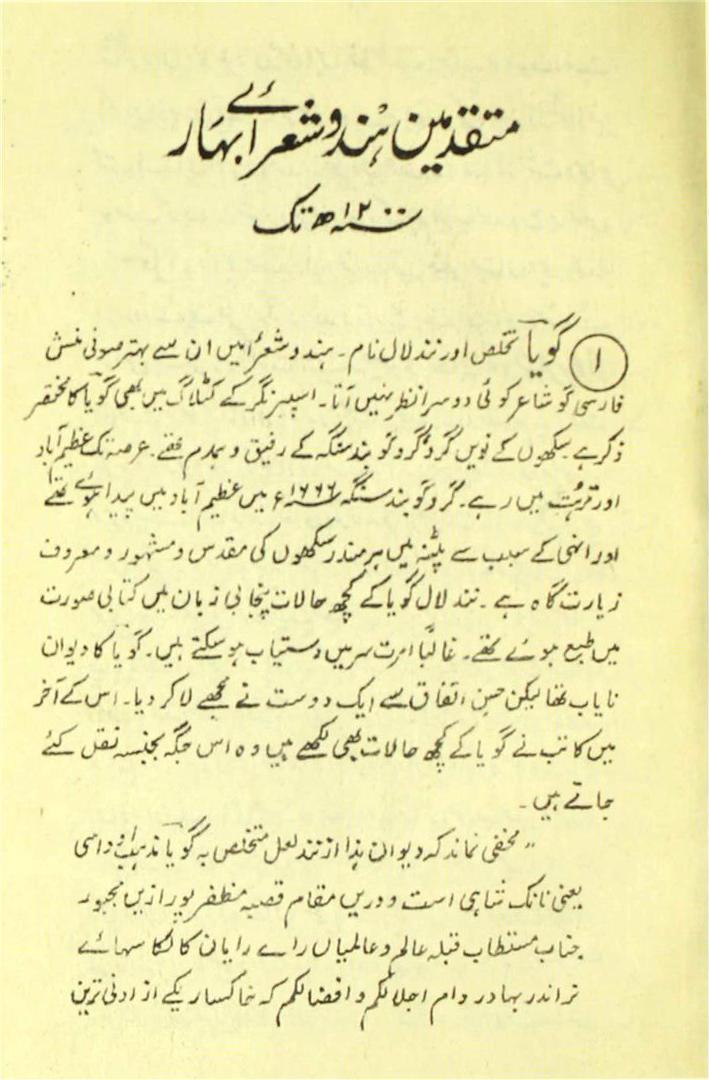 متقدمین ہندو شعرائے بہار
۱۲۰۰ھ تک
(۱) گویا تخلص اور نند لال نام۔ ہندو شعرأ میں ان سے بہتر صوفی منش
فارسی گو شاعر کوئی دوسرا نظر نہیں آتا۔ اسپرنگر کے کٹلاگ میں بھی گویا کا مختصر
ذکر ہے۔ سکھوں کے نویں گرو گرو گوبند سنگھ کے رفیق و ہمدم تھے۔ عرصہ تک عظیم آباد
اور ترہُت میں رہے۔ گرو گوبند سنگھ ۱۶۶۶ء میں عظیم آباد میں پیدا ہوئے تھے
اور انہی کے سبب سے پٹنہ میں ہر مندر سکھوں کی مقدس و مشہور و معروف
زیارت گاہ ہے۔ نند لال گویا کے کچھ حالات پنجابی زبان میں کتابی صورت
میں طبع ہوئے تھے۔ غالباً امرت سر میں دستیاب ہو سکتے ہیں۔ گویا کا دیوان
نایاب تھا لیکن حسن اتفاق سے ایک دوست نے مجھے لا کر دیا۔ اس کے آخر
میں کاتب نے گویا کے کچھ حالات بھی لکھے ہیں وہ اس جگہ بجنسہ نقل کئے
جاتے ہیں۔
"مخفی نماند کہ دیوان ہذا از نند لعل متخلص بہ گویا مذہب اوداسی
یعنی نانک شاہی است و دریں مقام قصبہ مظفر پور ازیں مہجور
جناب مستطاب قبلہ عالم و عالمیاں رائے رایان کالکا سہائے
نراندر بہادر دام اجلالکم و افضالکم کہ خاکسار یکے از ادنیٰ ترین